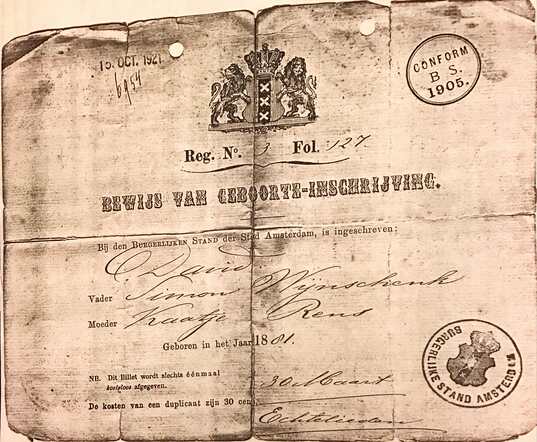 15 OCT. 1921
CONFORM
B S.
1905.
Reg. No. 3 Fol. 127.
BEWIJS VAN GEBOORTE-INSCHRIJVING.
Bij den BURGERLIJKEN STAND der Stad Amsterdam, is ingeschreven:
David
Vader Simon Wijnschenk
Moeder Kaatje Rens
Geboren in het Jaar 1881.
NB. Dit Billet wordt slechts éénmaal
kosteloos afgegeven.
30 Maart
De kosten van een duplicaat zijn 30 cen
Echtelieden
BURGERLIJKE STAND AMSTERDAM